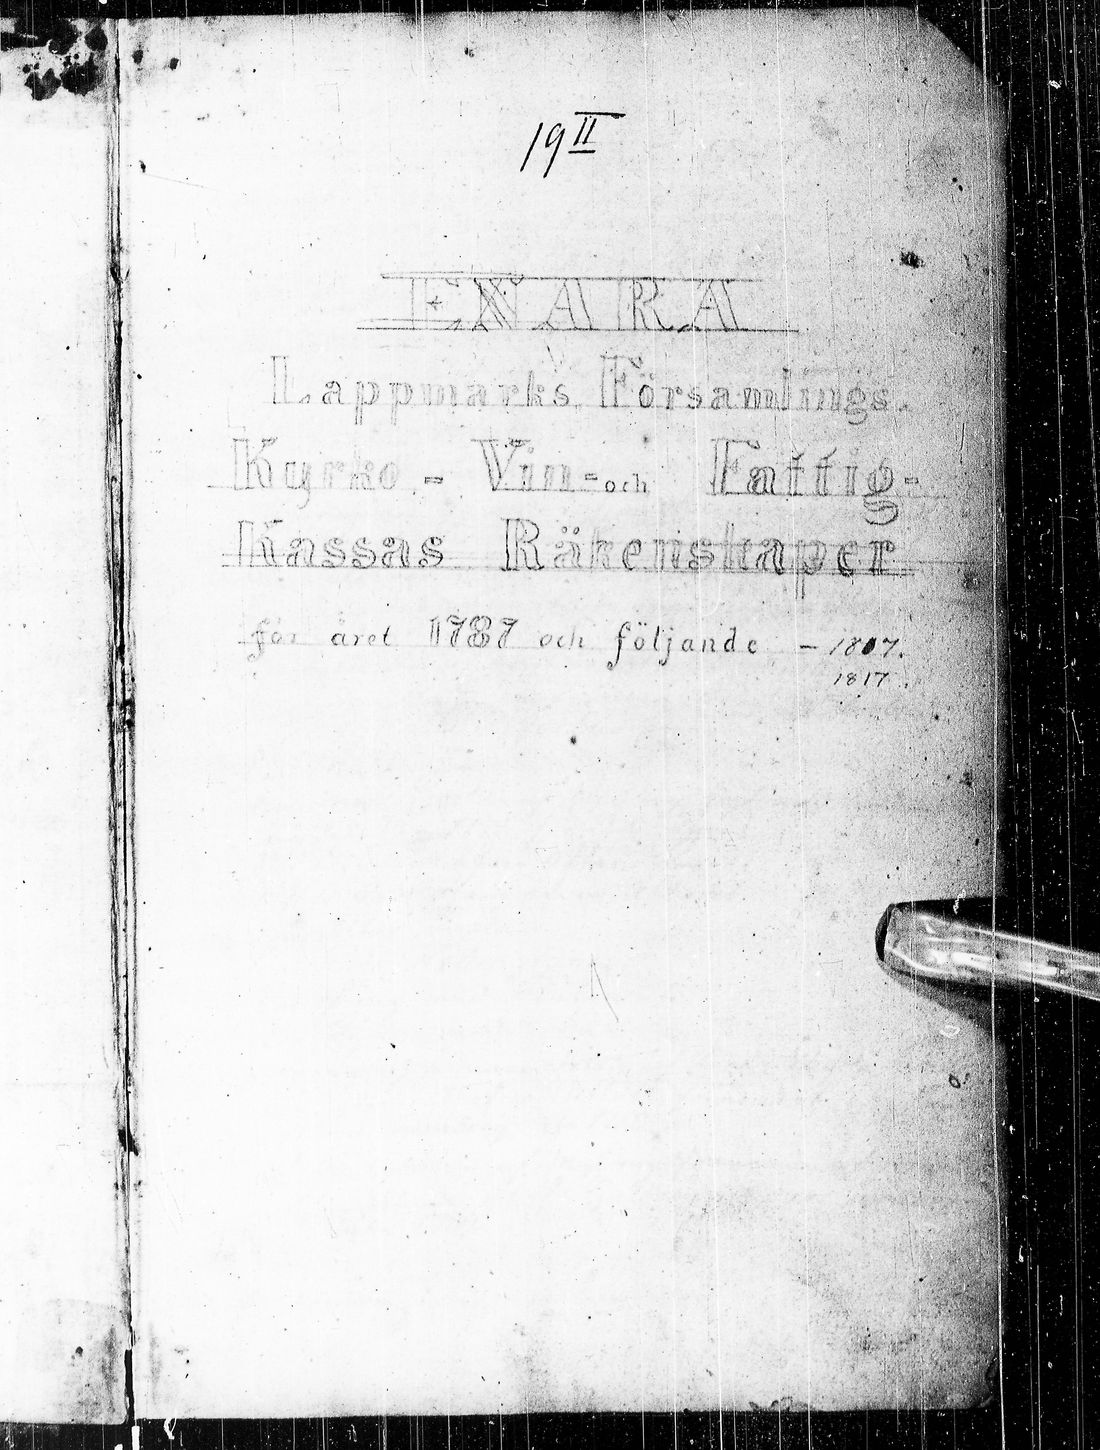 19 II
ENARA
Lappmarks Församlings.
Kyrko - Vin = och Fattig-
Kassas Räkenskaper
för året 1787 och följande — 1807.
1817.